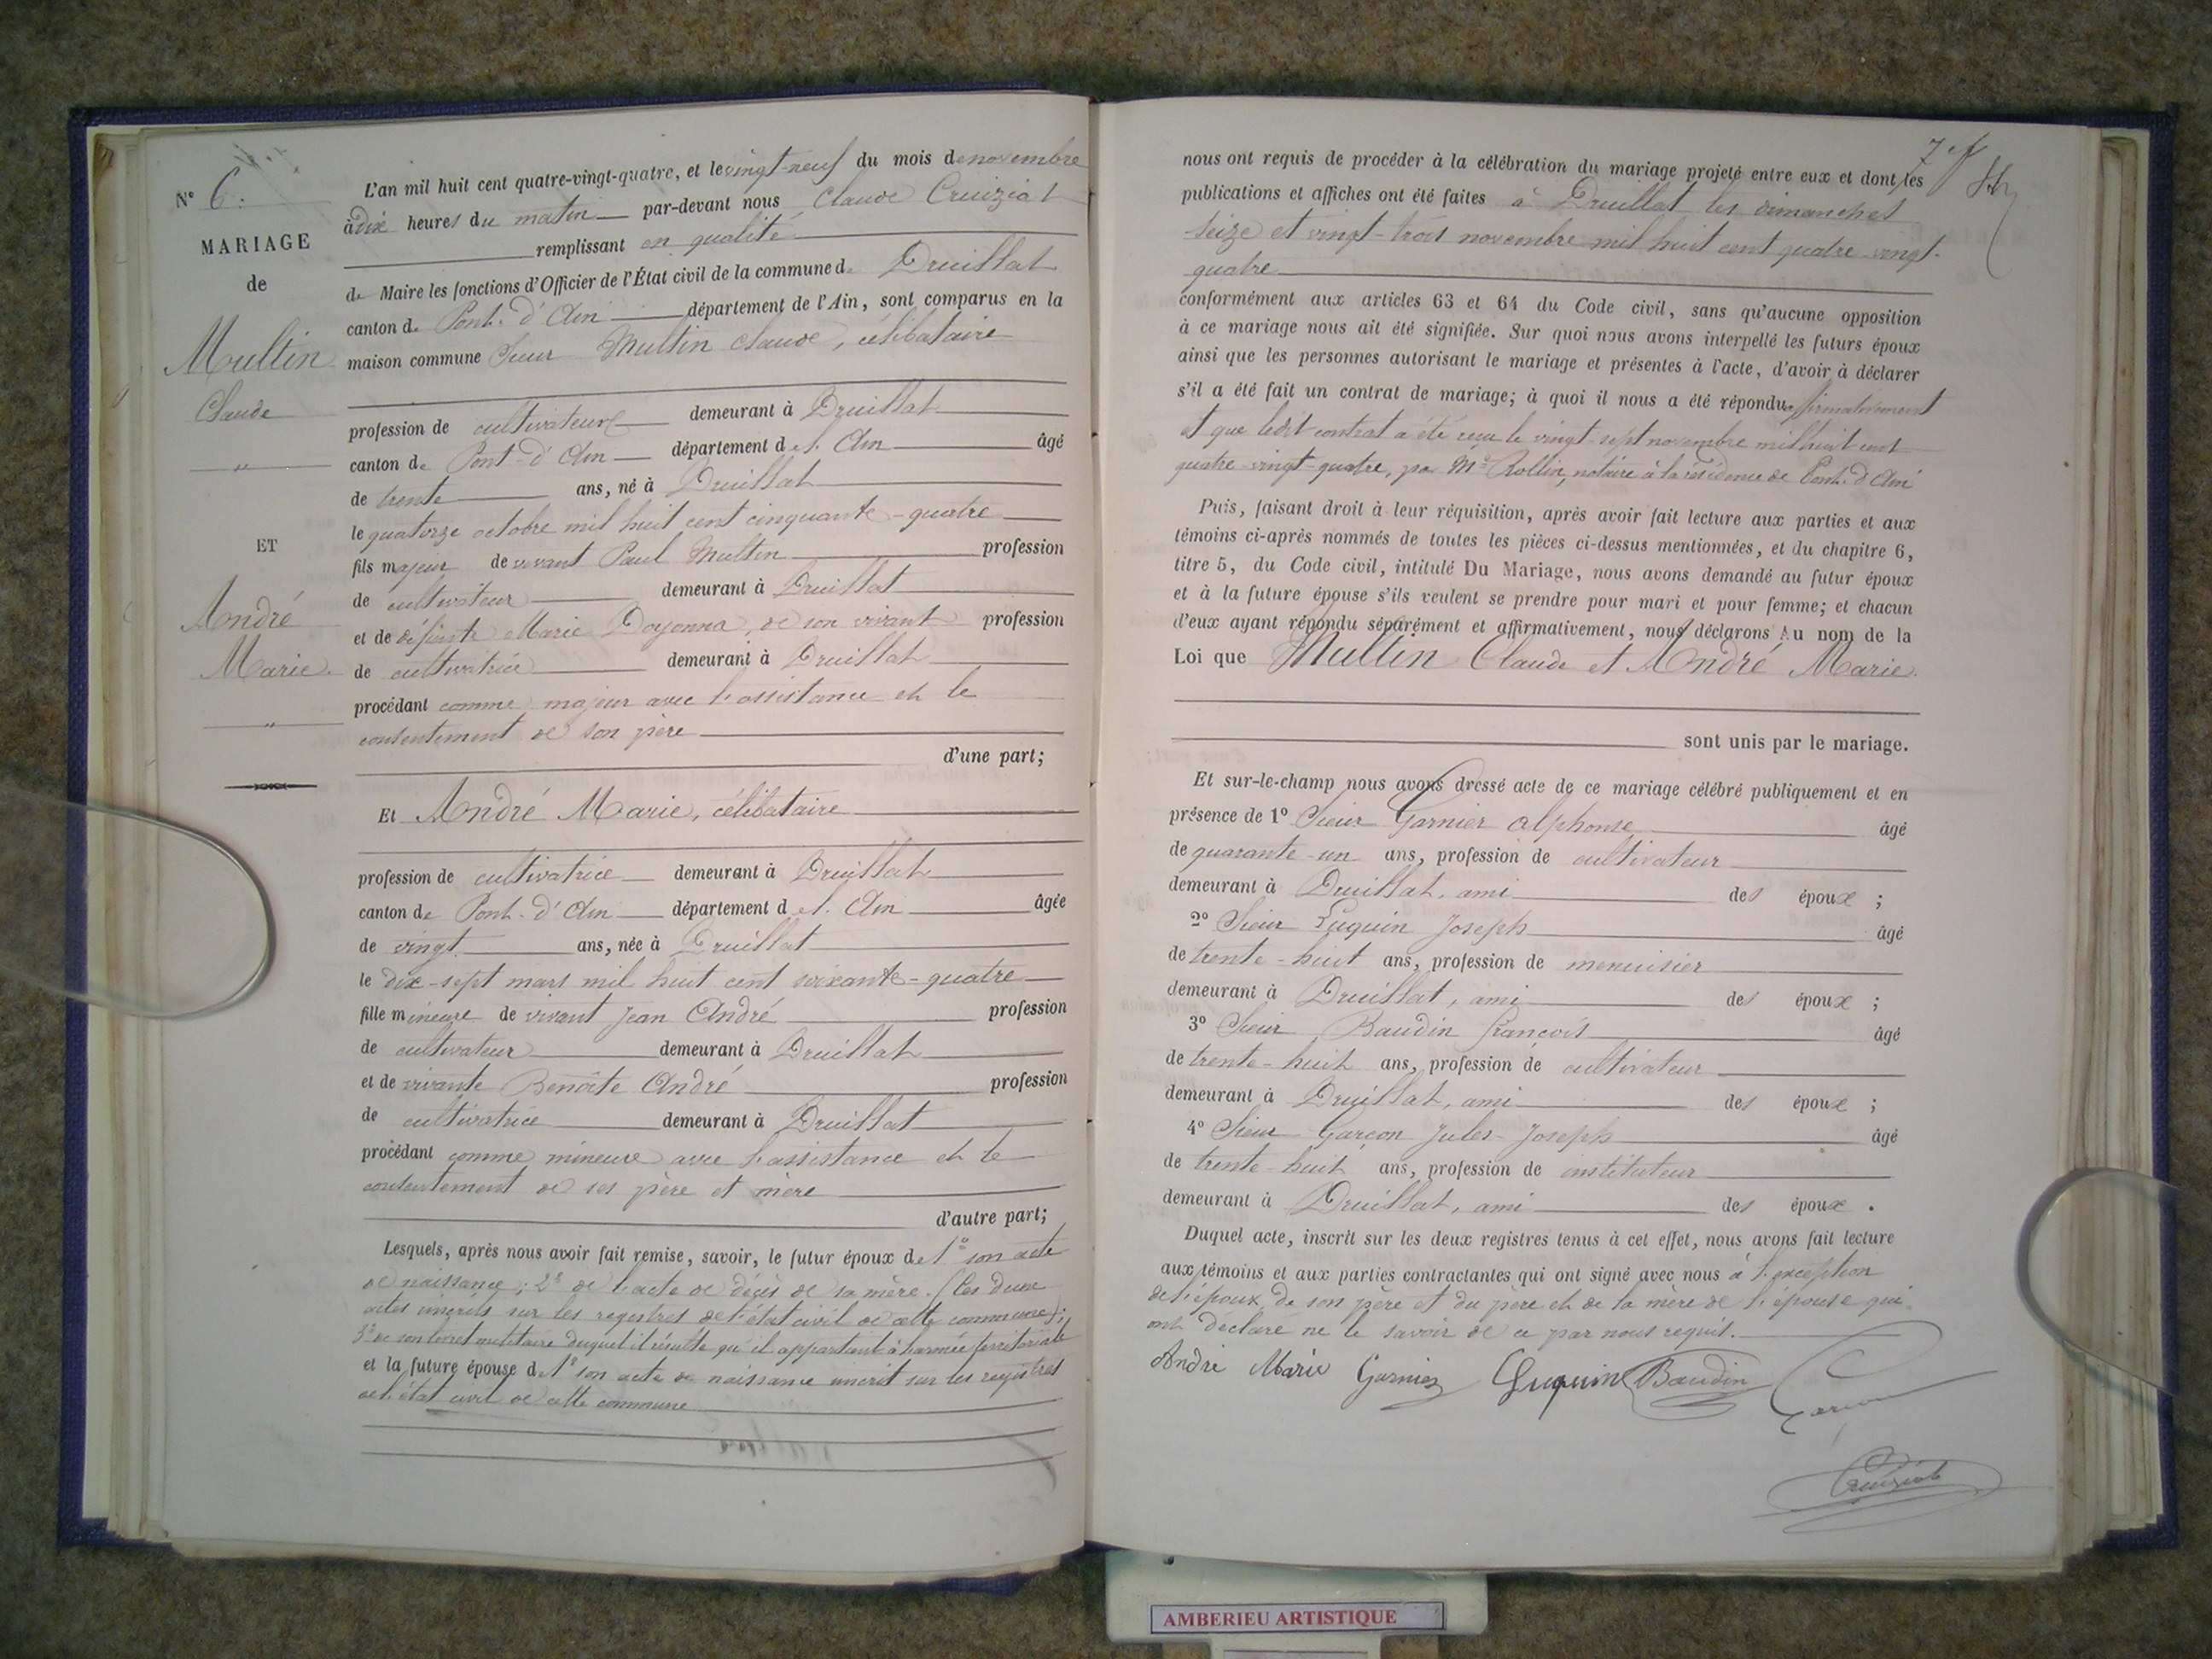 N° 6.
MARIAGE
de
Multin
Claude
"
ET
André
Marie
"
L'an mil huit cent quatre-vingt-quatre, et le vingt-neuf du mois de novembre
à dix heures du matin par-devant nous Claude Cruiziat
remplissant en qualité
de Maire les fonctions d'Officier de l'État civil de la commune de Druillat
canton de Pont-d'Ain département de l'Ain, sont comparus en la
maison commune Sieur Multin Claude, célibataire
profession de cultivateur demeurant à Druillat
canton de Pont-d'Ain département de l'Ain âgé
de trente ans, né à Druillat
le quatorze octobre mil huit cent cinquante-quatre
fils majeur de vivant Paul Multin profession
de cultivateur demeurant à Druillat
et de défunte Marie Doyonna, de son vivant profession
de cultivatrice demeurant à Druillat
procédant comme majeur avec l'assistance et le
consentement de son père
d'une part;
Et André Marie, célibataire
profession de cultivatrice demeurant à Druillat
canton de Pont-d'Ain département de l'Ain âgée
de vingt ans, née à Druillat
le dix-sept mars mil huit cent soixante-quatre
fille mineure de vivant Jean André profession
de cultivateur demeurant à Druillat
et de vivante Benoîte André profession
de cultivatrice demeurant à Druillat
procédant comme mineure avec l'assistance et le
consentement de ses père et mère
d'autre part;
Lesquels, après nous avoir fait remise, savoir, le futur époux de 1° son acte
de naissance; 2° de l'acte de décès de sa mère. (Ces deux
actes inscrits sur les registres de l'état civil de cette commune);
3° de son livret militaire duquel il résulte qu'il appartient à l'armée territoriale
et la future épouse de 1° son acte de naissance inscrit sur les registres
de l'état civil de cette commune
7
nous ont requis de procéder à la célébration du mariage projeté entre eux et dont les
publications et affiches ont été faites à Druillat les dimanches
seize et vingt-trois novembre mil huit cent quatre-vingt-
quatre
conformément aux articles 63 et 64 du Code civil, sans qu'aucune opposition
à ce mariage nous ait été signifiée. Sur quoi nous avons interpellé les futurs époux
ainsi que les personnes autorisant le mariage et présentes à l'acte, d'avoir à déclarer
s'il a été fait un contrat de mariage; à quoi il nous a été répondu affirmativement
et que ledit contrat a été reçu le vingt-sept novembre mil huit cent
quatre-vingt-quatre, par Me Rollin, notaire à la résidence de Pont-d'Ain
Puis, faisant droit à leur réquisition, après avoir fait lecture aux parties et aux
témoins ci-après nommés de toutes les pièces ci-dessus mentionnées, et du chapitre 6,
titre 5, du Code civil, intitulé Du Mariage, nous avons demandé au futur époux
et à la future épouse s'ils veulent se prendre pour mari et pour femme; et chacun
d'eux ayant répondu séparément et affirmativement, nous déclarons Au nom de la
Loi que Multin Claude et André Marie
sont unis par le mariage.
Et sur-le-champ nous avons dressé acte de ce mariage célébré publiquement et en
présence de 1° Sieur Garnier Alphonse âgé
de quarante-un ans, profession de cultivateur
demeurant à Druillat, ami des époux ;
2° Sieur Luquin Joseph âgé
de trente-huit ans, profession de menuisier
demeurant à Druillat, ami des époux ;
3° Sieur Baudin François âgé
de trente-huit ans, profession de cultivateur
demeurant à Druillat, ami des époux ;
4° Sieur Garçon Jules-Joseph âgé
de trente-huit ans, profession de instituteur
demeurant à Druillat, ami des époux .
Duquel acte, inscrit sur les deux registres tenus à cet effet, nous avons fait lecture
aux témoins et aux parties contractantes qui ont signé avec nous à l'exception
de l'époux, de son père et du père et de la mère de l'épouse qui
ont déclaré ne le savoir de ce par nous requis.
André Marie Garnier Luquin Baudin
Garçon
Cruiziat
AMBERIEU ARTISTIQUE